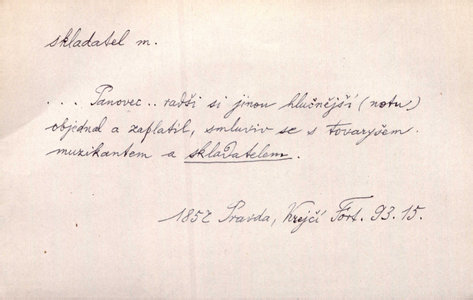 skladatel m.
... Panovec .. radši si jinou hlučnější (notu)
objednal a zaplatil, smluviv se s tovaryšem
muzikantem a skladatelem.
1857 Pravda, Krejčí Fort. 93.15.